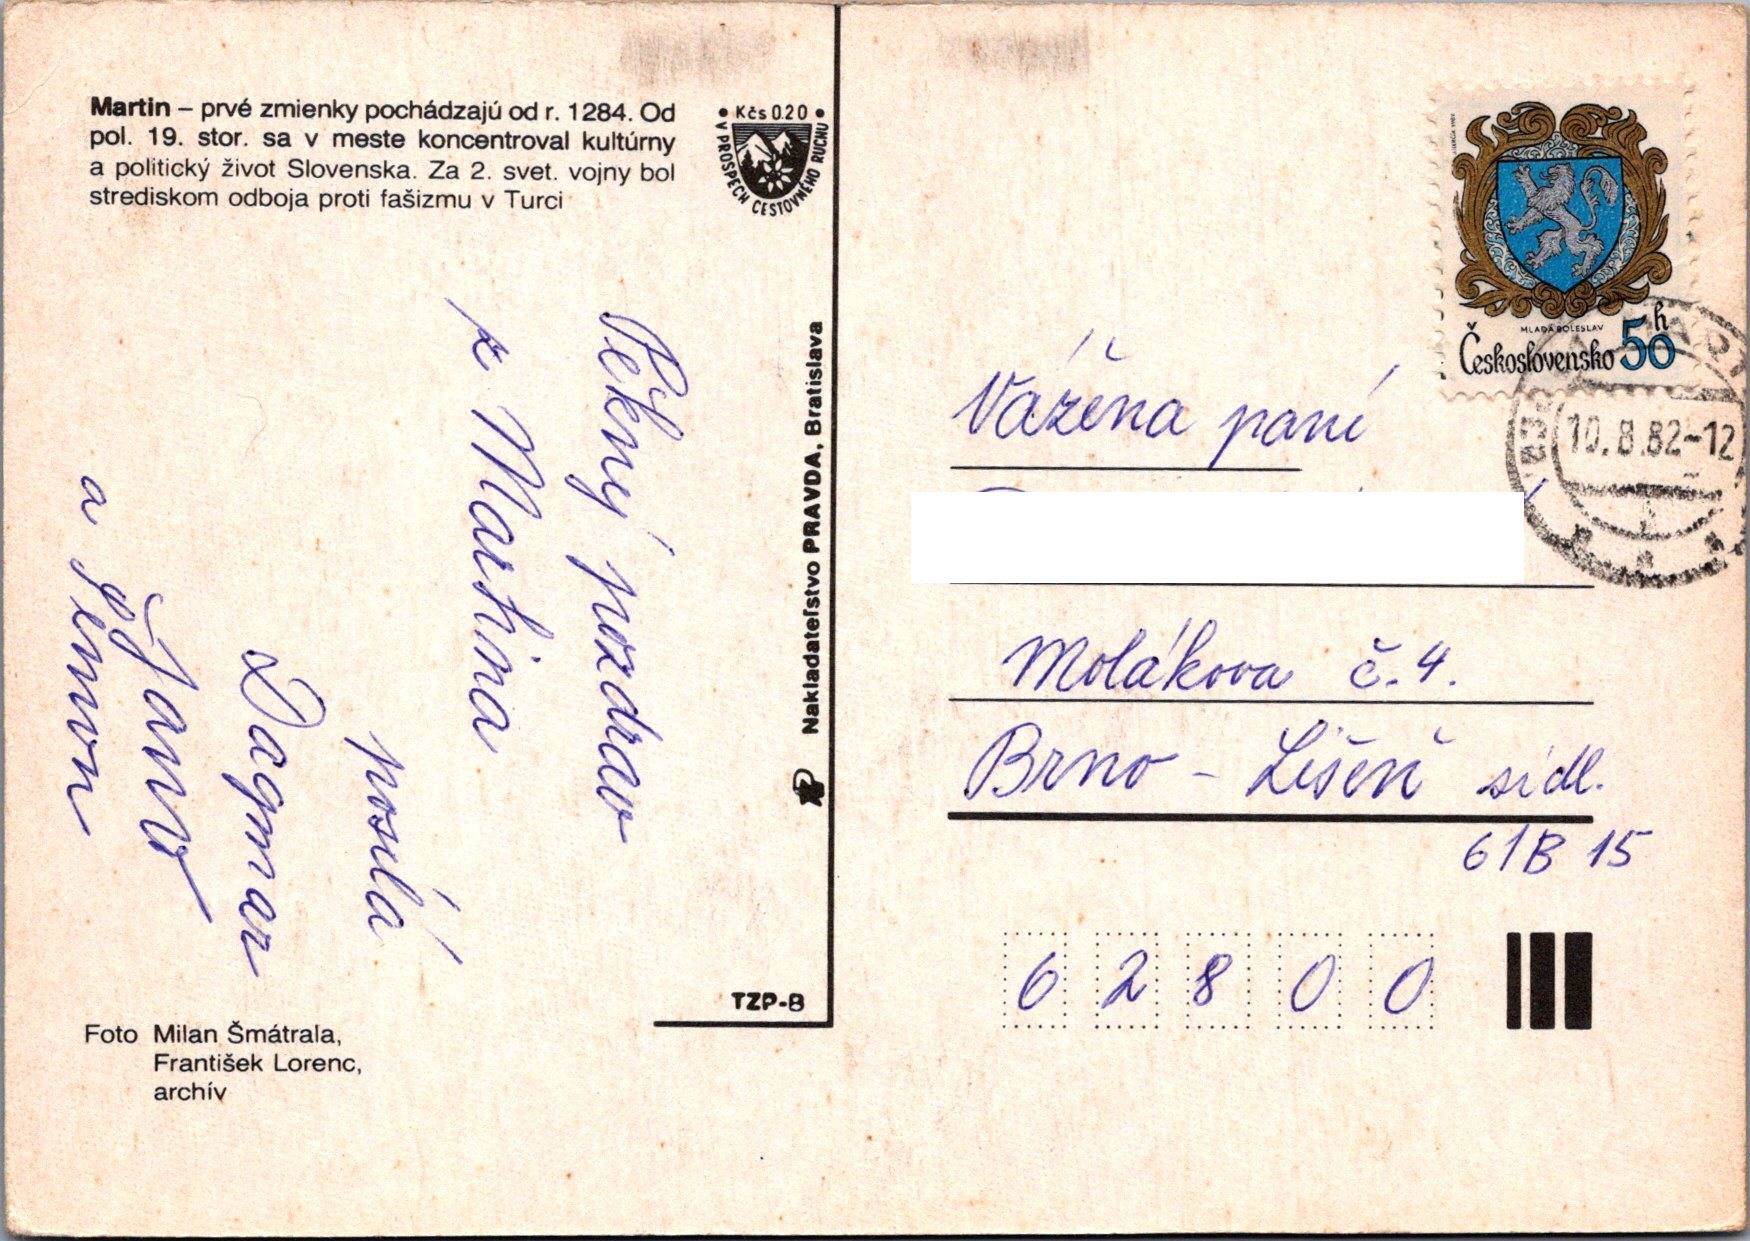 Martin – prvé zmienky pochádzajú od r. 1284. Od
pol. 19. stor. sa v meste koncentroval kultúrny
a politický život Slovenska. Za 2. svet. vojny bol
strediskom odboja proti fašizmu v Turci
• Kčs 0.20 •
V PROSPECH CESTOVNÉHO RUCHU
Pěkný pozdrav
z Martina
posílá
Dagmar
Jano
a Šimon
Nakladateľstvo PRAVDA, Bratislava
TZP-B
Foto Milan Šmátrala,
František Lorenc,
archív
MLADÁ BOLESLAV
Československo 50 h
10.8.82-12
Vážená paní
Molákova č. 4.
Brno - Líšeň sídl.
61B 15
62800